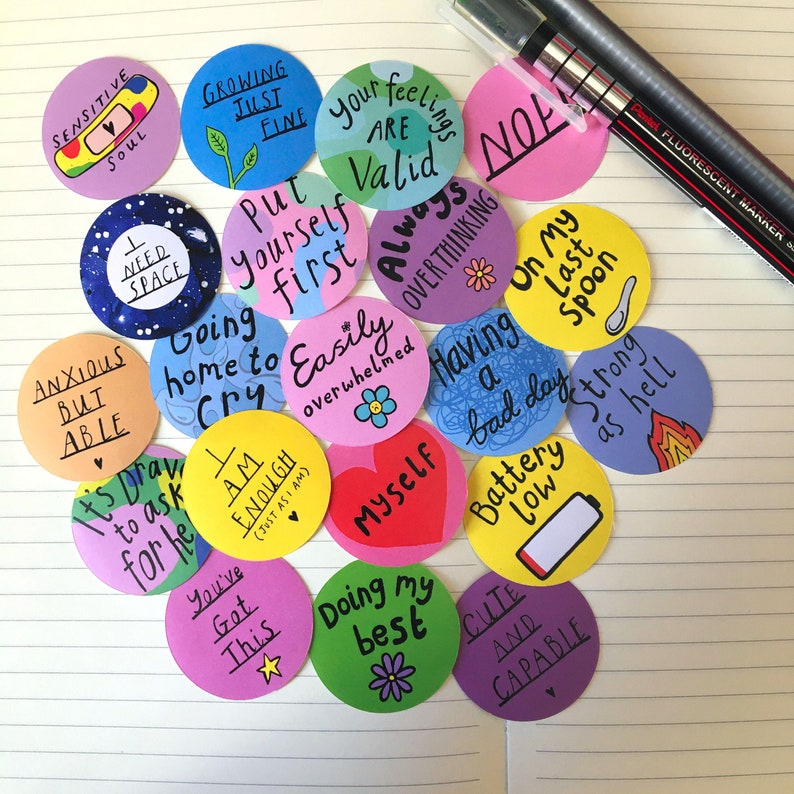 SENSITIVE
SOUL
GROWING
JUST
FINE
Your feelings
ARE
Valid
NOPE
Pentel FLUORESCENT MARKER
I
NEED
SPACE
Put
yourself
first
Always
OVERTHINKING
On My
Last
Spoon
ANXIOUS
BUT
ABLE
Going
home to
Cry
Easily
overwhelmed
Having
a
bad day
Strong
as hell
It's Brave
to ask
for he
I
AM
ENOUGH
(JUST AS I AM)
Myself
Battery
low
You've
Got
This
Doing my
best
CUTE
AND
CAPABLE